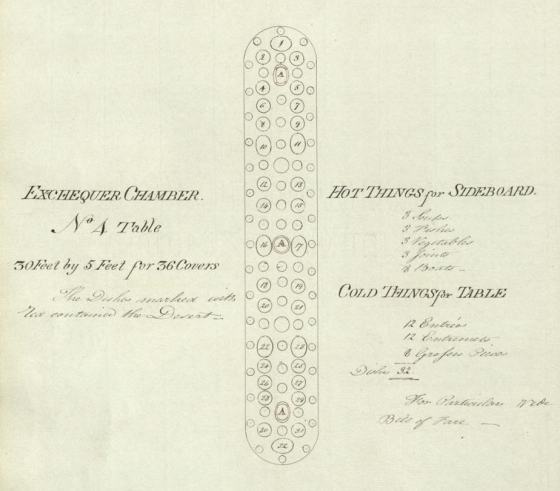 EXCHEQUER CHAMBER.
No 4 Table
30 Feet by 5 Feet for 36 Covers
The Dishes marked with
contained the Desert
1
2 3
A
4 5
6 7
8 9
10 11
12 13
14 15
16 A 17
18 19
20 21
22 23
24 25
26 27
28 29
A
30 31
32
HOT THINGS for SIDEBOARD.
3 Soups
3 Fishes
3 Vegetables
3 Joints
8 Boats
COLD THINGS for TABLE
12 Entrées
12 Entremets
8 Grosses Pieces
Dishes 32
For Particulars
Bill of Fare